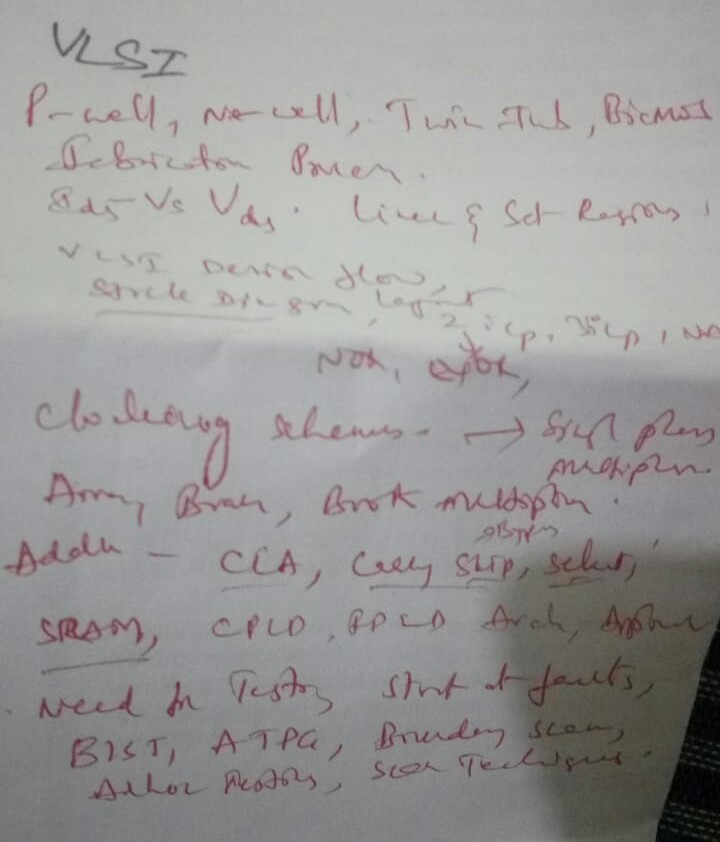 VLSI
P-well, N-well, Twin Tub, BiCMOS
Fabrication Process.
Ids Vs Vds. Linear & Sat Regions,
VLSI Design flow,
Stick Diagram, Layout
2 i/p, 3 i/p,
NOR, EXOR,
Clocking schemes. →
multiplier.
Array, Braun, Booth multiplier.
Bypass
Adder - CLA, Carry Skip, Select,
SRAM, CPLD, Arch,
Need for Testing Stuck at faults,
BIST, ATPG, Boundary scan,
Adhoc Testing, Scan Techniques.